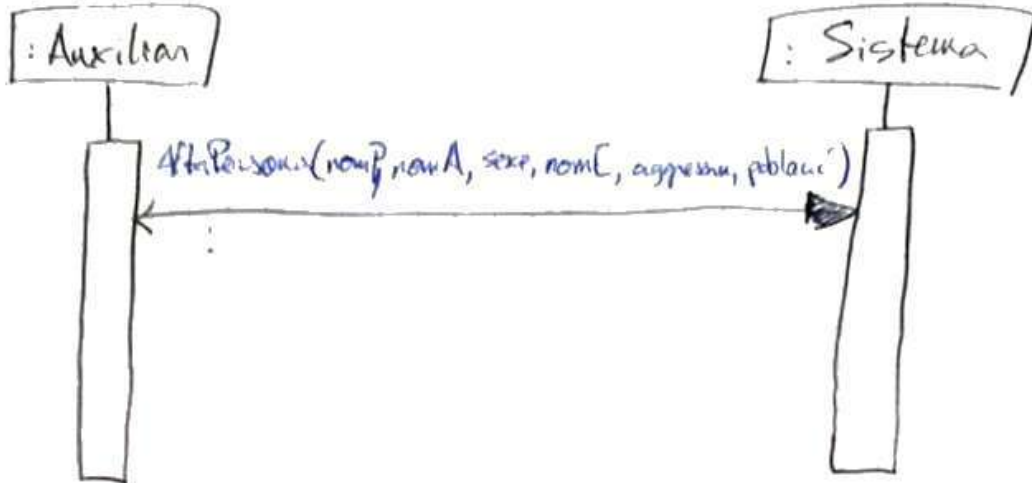 : Auxiliar
: Sistema
AltaPersona(nomP, nomA, sexe, nomC, aggressiu, població)
: